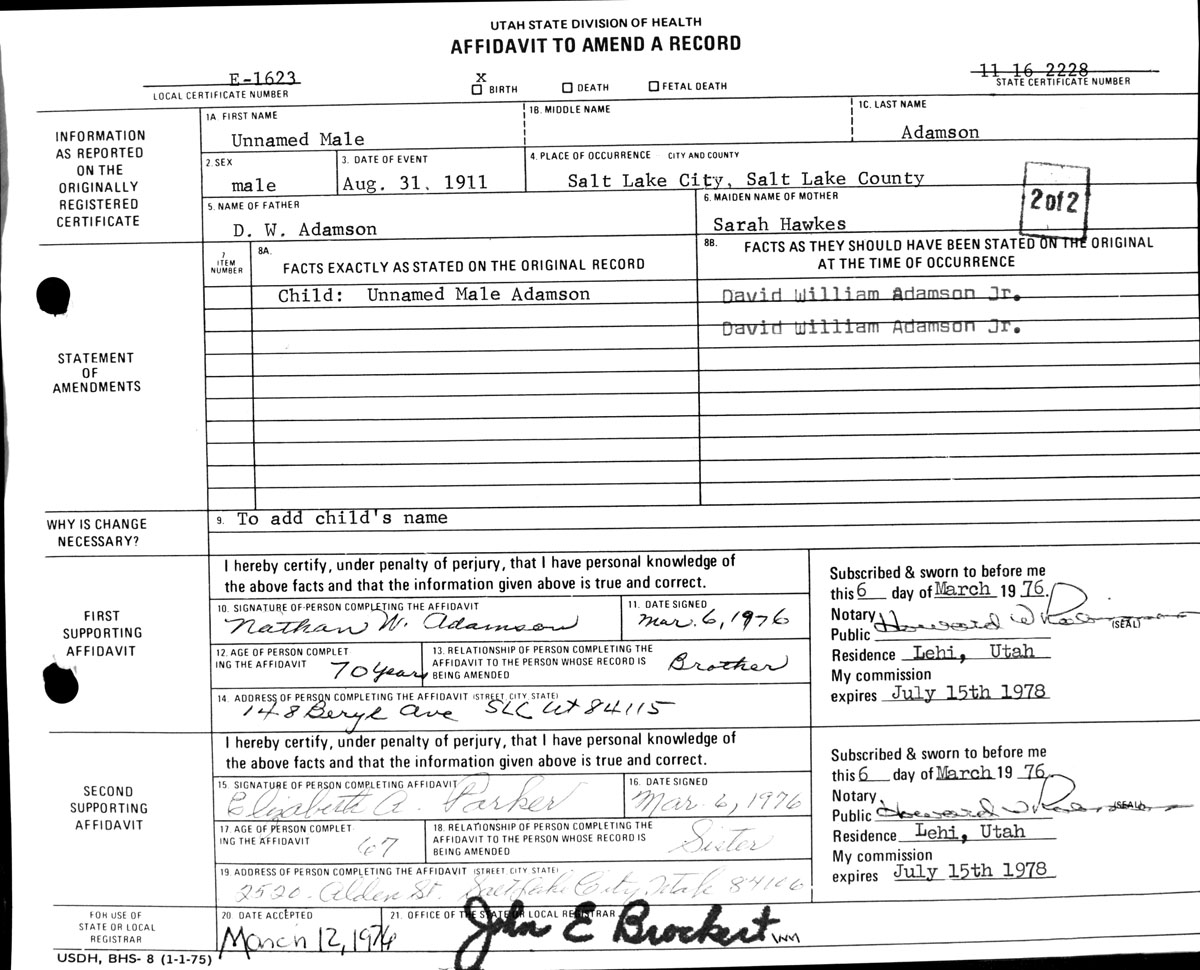 UTAH STATE DIVISION OF HEALTH
AFFIDAVIT TO AMEND A RECORD
E-1623
LOCAL CERTIFICATE NUMBER
X
BIRTH
DEATH
FETAL DEATH
11 16 2228
STATE CERTIFICATE NUMBER
INFORMATION
AS REPORTED
ON THE
ORIGINALLY
REGISTERED
CERTIFICATE
1A FIRST NAME
Unnamed Male
1B. MIDDLE NAME
1C. LAST NAME
Adamson
2. SEX
male
3. DATE OF EVENT
Aug. 31. 1911
4. PLACE OF OCCURRENCE CITY AND COUNTY
Salt Lake City, Salt Lake County
5. NAME OF FATHER
D. W. Adamson
6. MAIDEN NAME OF MOTHER
Sarah Hawkes
2 of 2
STATEMENT
OF
AMENDMENTS
7
ITEM
NUMBER
8A.
FACTS EXACTLY AS STATED ON THE ORIGINAL RECORD
8B.
FACTS AS THEY SHOULD HAVE BEEN STATED ON THE ORIGINAL
AT THE TIME OF OCCURRENCE
Child: Unnamed Male Adamson
David William Adamson Jr.
David William Adamson Jr.
WHY IS CHANGE
NECESSARY?
9. To add child's name
FIRST
SUPPORTING
AFFIDAVIT
I hereby certify, under penalty of perjury, that I have personal knowledge of
the above facts and that the information given above is true and correct.
10. SIGNATURE OF PERSON COMPLETING THE AFFIDAVIT
Nathan W. Adamson
11. DATE SIGNED
Mar. 6, 1976
12. AGE OF PERSON COMPLET
ING THE AFFIDAVIT
70 years
13. RELATIONSHIP OF PERSON COMPLETING THE
AFFIDAVIT TO THE PERSON WHOSE RECORD IS
BEING AMENDED
Brother
14. ADDRESS OF PERSON COMPLETING THE AFFIDAVIT (STREET, CITY, STATE)
148 Beryl Ave SLC Ut 84115
Subscribed & sworn to before me
this 6 day of March 19 76.
Notary
Public Howard W (SEAL)
Residence Lehi, Utah
My commission
expires July 15th 1978
SECOND
SUPPORTING
AFFIDAVIT
I hereby certify, under penalty of perjury, that I have personal knowledge of
the above facts and that the information given above is true and correct.
15 SIGNATURE OF PERSON COMPLETING AFFIDAVIT
Elizabeth A. Parker
16. DATE SIGNED
Mar. 6, 1976
17. AGE OF PERSON COMPLET
ING THE AFFIDAVIT
67
18. RELATIONSHIP OF PERSON COMPLETING THE
AFFIDAVIT TO THE PERSON WHOSE RECORD IS
BEING AMENDED
Sister
19. ADDRESS OF PERSON COMPLETING THE AFFIDAVIT (STREET CITY STATE)
2520 Alden St. Salt Lake City, Utah 84106
Subscribed & sworn to before me
this 6 day of March 19 76
Notary
Public Howard W (SEAL)
Residence Lehi, Utah
My commission
expires July 15th 1978
FOR USE OF
STATE OR LOCAL
REGISTRAR
20. DATE ACCEPTED
March 12, 1976
21. OFFICE OF THE STATE OR LOCAL REGISTRAR
John E Brockert
USDH, BHS- 8 (1-1-75)